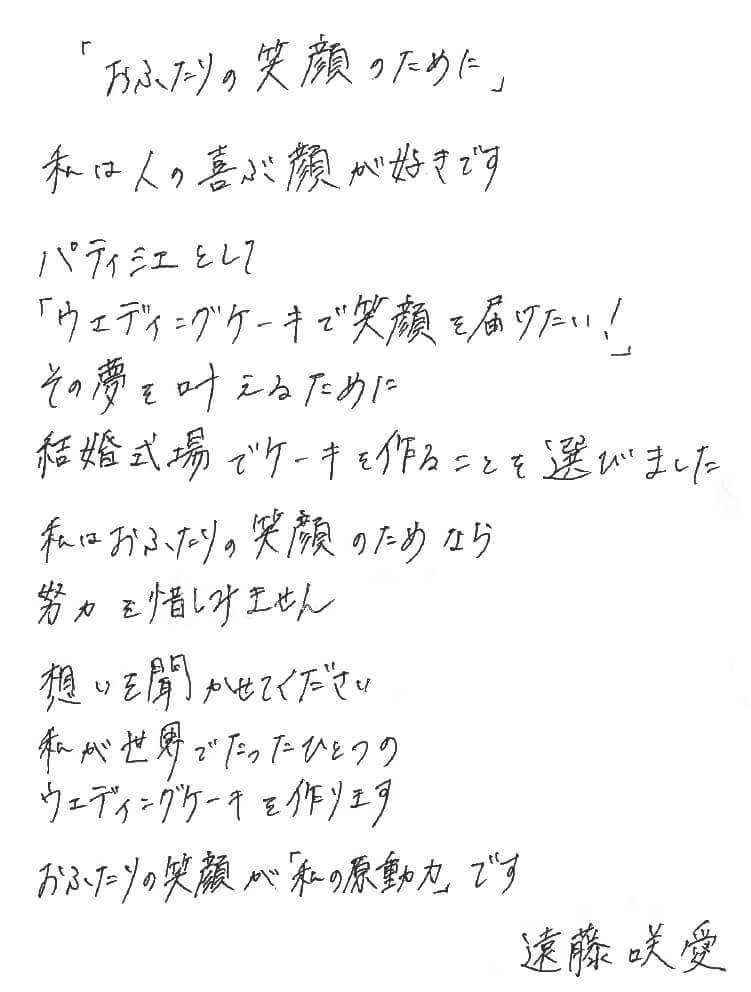 「おふたりの笑顔のために」
私は人の喜ぶ顔が好きです
パティシエとして
「ウェディングケーキで笑顔を届けたい！」
その夢を叶えるために
結婚式場でケーキを作ることを選びました
私はおふたりの笑顔のためなら
努力を惜しみません
想いを聞かせてください
私が世界でたったひとつの
ウェディングケーキを作ります
おふたりの笑顔が「私の原動力」です
遠藤咲愛